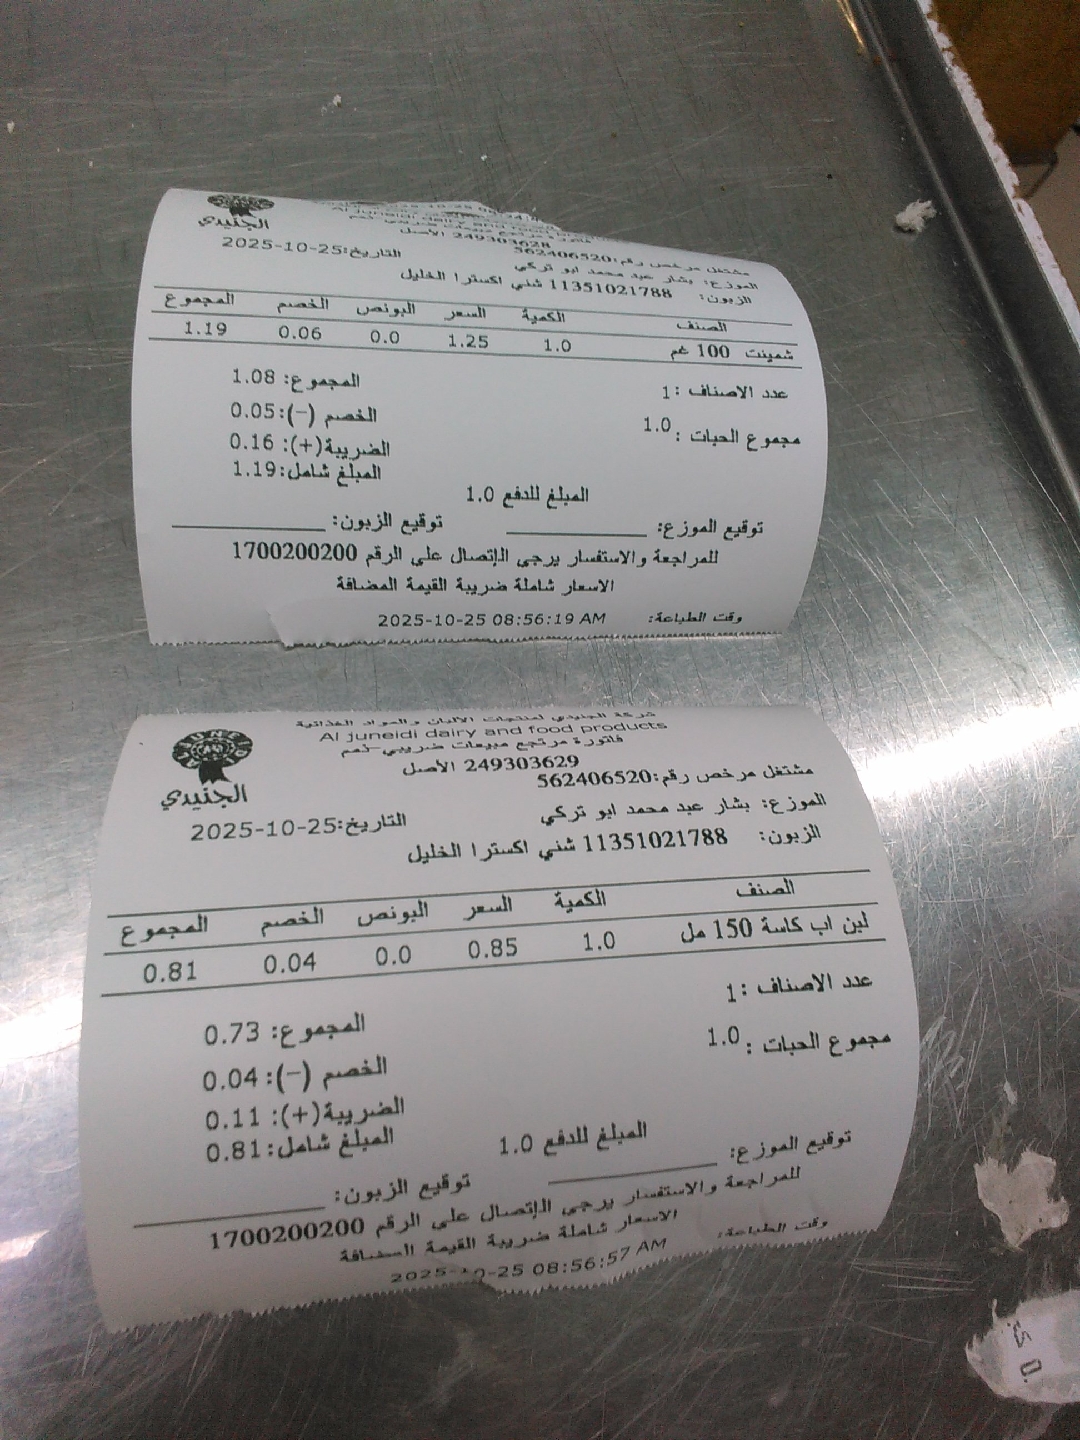 الجنيدي
Al juneidi dairy and food
249303628 الأصل
مشتغل مرخص رقم:562406520
التاريخ:2025-10-25
الموزع: بشار عبد محمد ابو تركي
الزبون: 11351021788 شني اكسترا الخليل
الصنف الكمية السعر البونص الخصم المجموع
شمينت 100 غم 1.0 1.25 0.0 0.06 1.19
عدد الاصناف :1
المجموع: 1.08
مجموع الحبات : 1.0
الخصم (-):0.05
الضريبة(+): 0.16
المبلغ شامل:1.19
المبلغ للدفع 1.0
توقيع الموزع: توقيع الزبون:
للمراجعة والاستفسار يرجى الإتصال على الرقم 1700200200
الاسعار شاملة ضريبة القيمة المضافة
وقت الطباعة: 2025-10-25 08:56:19 AM
AL JUNEIDI
الجنيدي
شركة الجنيدي لمنتجات الالبان والمواد الغذائية
Al juneidi dairy and food products
فاتورة مرتجع مبيعات ضريبي-نعم
249303629 الأصل
مشتغل مرخص رقم:562406520
الموزع: بشار عبد محمد ابو تركي
التاريخ:2025-10-25
الزبون: 11351021788 شني اكسترا الخليل
الصنف الكمية السعر البونص الخصم المجموع
لبن اب كاسة 150 مل 1.0 0.85 0.0 0.04 0.81
عدد الاصناف :1
المجموع: 0.73
مجموع الحبات : 1.0
الخصم (-):0.04
الضريبة(+): 0.11
المبلغ شامل:0.81
المبلغ للدفع 1.0
توقيع الموزع: توقيع الزبون:
للمراجعة والاستفسار يرجى الإتصال على الرقم 1700200200
الاسعار شاملة ضريبة القيمة المضافة
وقت الطباعة: 2025-10-25 08:56:57 AM